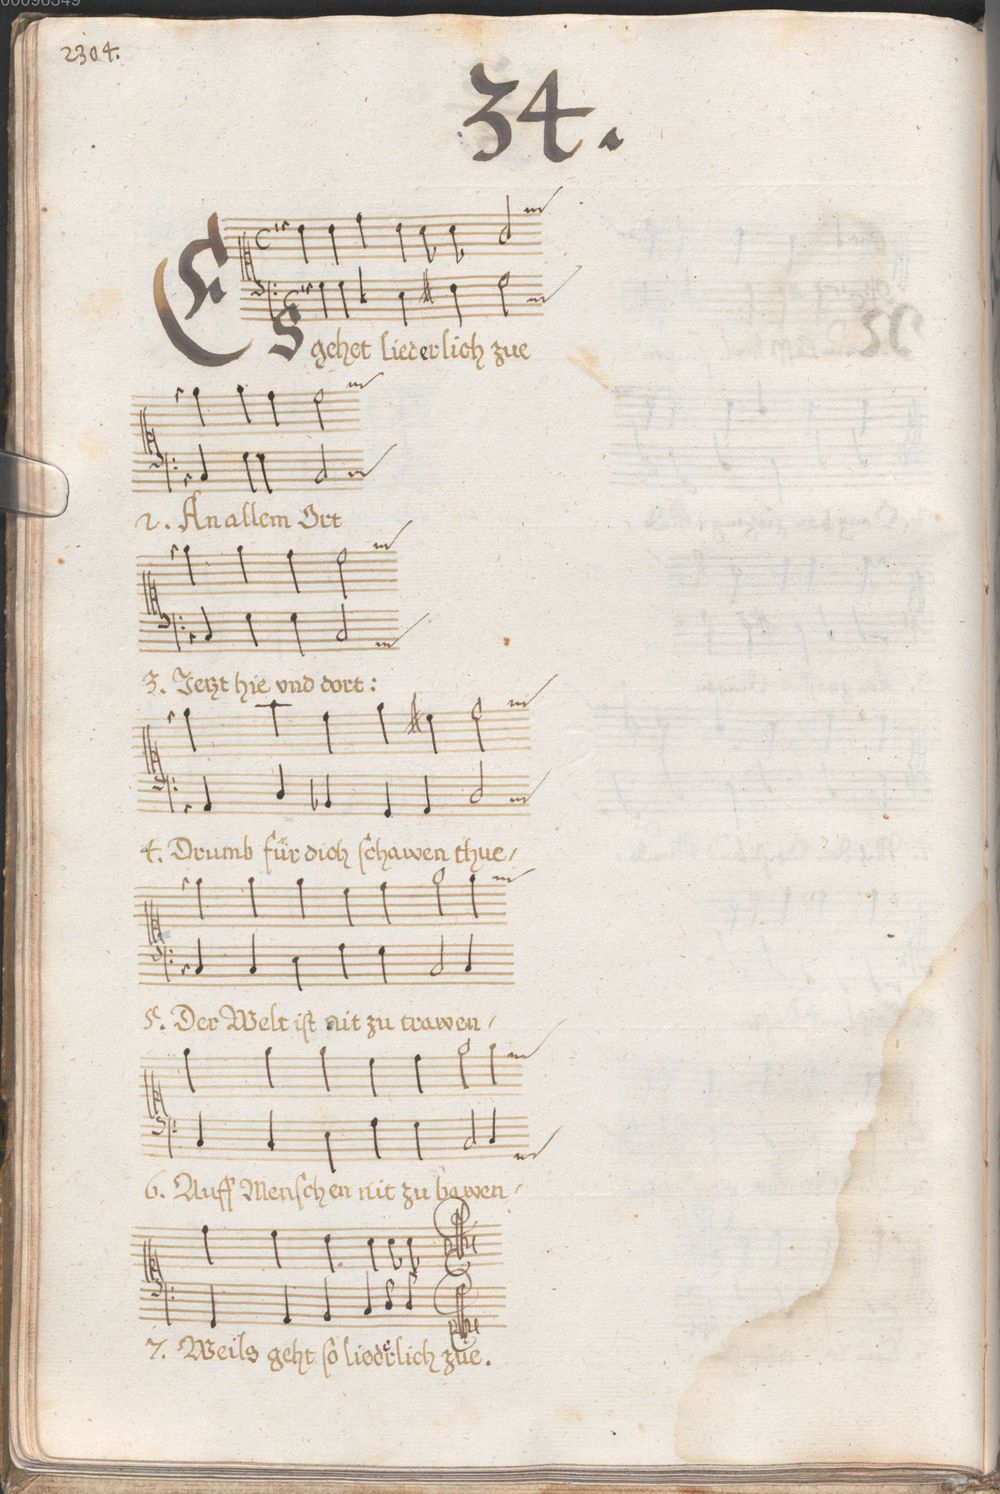 00098349
2304.
34.
ES gehet liederlich zue
2. An allem Ort
3. Jetzt hie vnd dort:
4. Drumb für dich schawen thue/
5. Der Welt ist nit zu trawen/
6. Auff Menschen nit zu bawen/
7. Weils geht so liederlich zue.